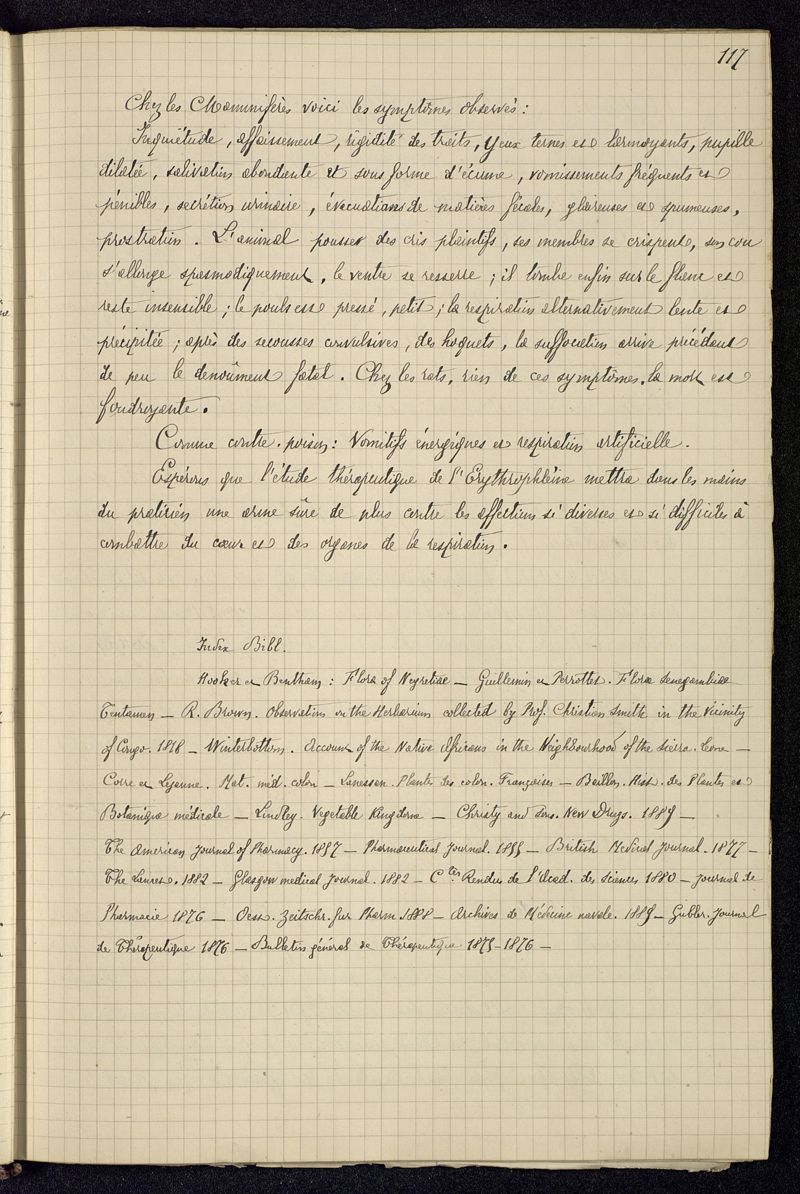 117
Chez les Mammifères voici les symptômes observés :
Inquiétude, affaissement, rigidité des traits, yeux ternes et larmoyants, pupille
dilatée, salivation abondante et sous forme d'écume, vomissements fréquents et
pénibles, secrétion urinaire, évacuations de matières fécales, glaireuses et spumeuses,
prostration. L'animal pousse des cris plaintifs, ses membres se crispent, son cou
s'allonge spasmodiquement, le ventre se resserre ; il tombe enfin sur le flanc et
reste insensible ; le pouls est pressé, petit ; la respiration alternativement lente et
précipitée ; après des secousses convulsives, des hoquets, la suffocation arrive précédant
de peu le denoûment fatal. Chez les rats, rien de ces symptômes, la mort est
foudroyante.
Comme contre-poison : Vomitifs énergiques et respiration artificielle.
Espérons que l'étude thérapeutique de l'Erythrophléine mettra dans les mains
du praticien une arme sûre de plus contre les affections si diverses et si difficiles à
combattre du cœur et des organes de la respiration.
Index Bibl.
Hooker et Bentham : Flora of Negretiae — Guillemin et Perrottet. Florae Senegambiae
Tentamen — R. Brown. Observation on the Herbarium collected by Prof. Christian Smith in the Vicinity
of Congo. 1818 — Winterbottom. Account of the Native Africans in the Neighbourhood of the Sierra-Leone —
Corre et Lejanne. Mat. méd. colon — Lanessan. Plantes des colon. Françaises — Baillon. Hist. des Plantes et
Botanique médicale — Lindley. Vegetable Kingdom — Christy and Sons. New Drugs. 1889 —
The American Journal of Pharmacy. 1857 — Pharmaceutical Journal. 1855 — British Medical Journal. 1877 —
The Lancet. 1882 — Glasgow medical Journal. 1882 — C tes Rendus de l'Acad. des Sciences 1880 — Journal de
Pharmacie 1876 — Oest. Zeitschr. fur Pharm. 1888 — Archives de Médecine navale. 1885 — Gubler. Journal
de Thérapeutique 1876 — Bulletin général de Thérapeutique 1875-1876 —